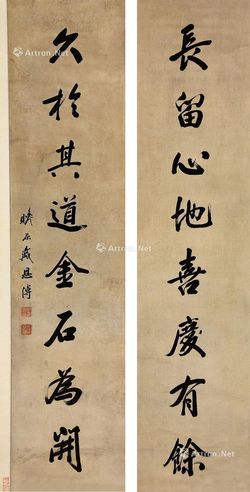 長留心地喜慶有餘
久於其道金石為開
瞻石戴恩溥
Artron.Net
Artron.Net